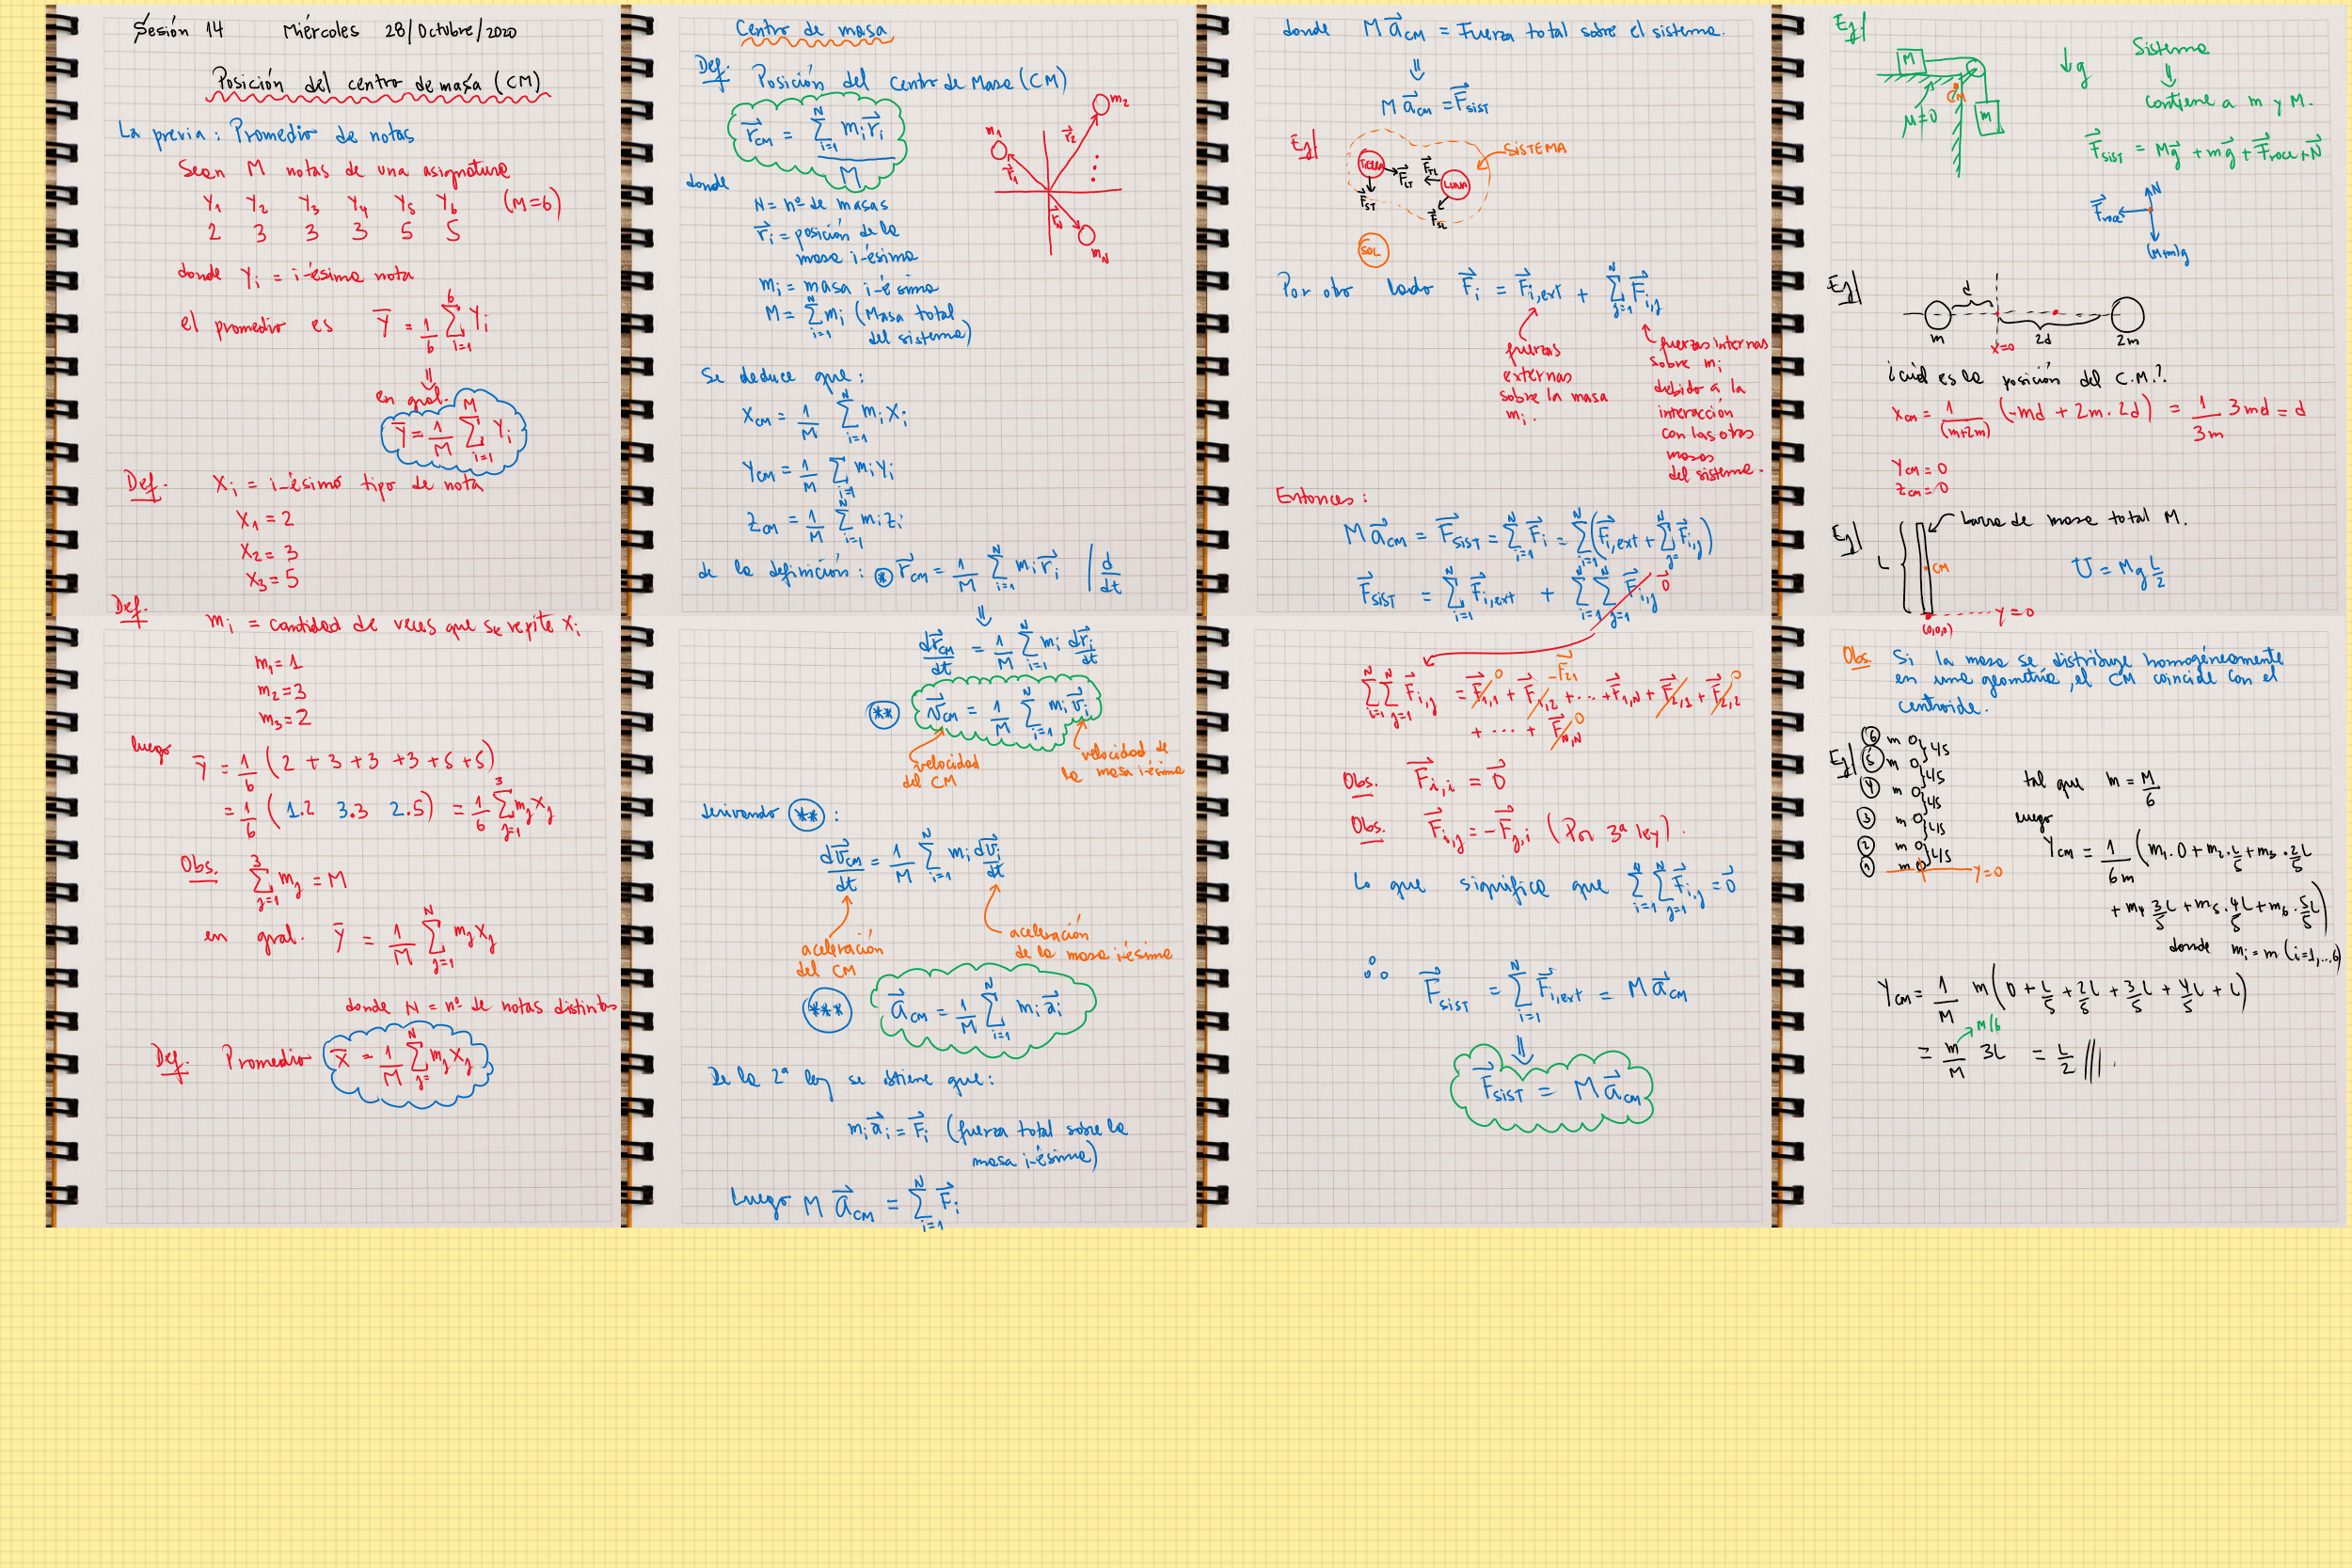 Sesión 14 Miércoles 28/Octubre/2020
Posición del centro de masa (CM)
La previa: Promedio de notas
Sean M notas de una asignatura
Y₁ Y₂ Y₃ Y₄ Y₅ Y₆ (M=6)
2 3 3 3 5 5
donde Yᵢ = i-ésima nota
el promedio es Ȳ = 1/6 Σᵢ₌₁⁶ Yᵢ
⇓
en gral.
Ȳ = 1/M Σᵢ₌₁ᴹ Yᵢ
Def. Xᵢ = i-ésimo tipo de nota
X₁ = 2
X₂ = 3
X₃ = 5
Def.
mᵢ = cantidad de veces que se repite Xᵢ
m₁ = 1
m₂ = 3
m₃ = 2
luego
Ȳ = 1/6 (2 + 3 + 3 + 3 + 5 + 5)
= 1/6 (1.2 3.3 2.5) = 1/6 Σⱼ₌₁³ mⱼ Xⱼ
Obs. Σⱼ₌₁³ mⱼ = M
en gral. Ȳ = 1/M Σⱼ₌₁ᴺ mⱼ Xⱼ
donde N = nº de notas distintas
Def. Promedio X̄ = 1/M Σⱼ₌ᴺ mⱼ Xⱼ
Centro de masa
Def. Posición del Centro de Masa (CM)
r⃗_CM = Σᵢ₌₁ᴺ mᵢ r⃗ᵢ / M
m₁ r⃗₁ m₂ r⃗₂ r⃗_N m_N
donde
N = nº de masas
r⃗ᵢ = posición de la
masa i-ésima
mᵢ = masa i-ésima
M = Σᵢ₌₁ᴺ mᵢ (Masa total
del sistema)
Se deduce que:
X_CM = 1/M Σᵢ₌₁ᴺ mᵢ Xᵢ
Y_CM = 1/M Σᵢ₌₁ mᵢ Yᵢ
Z_CM = 1/M Σᵢ₌₁ᴺ mᵢ Zᵢ
de la definición: (*) r⃗_CM = 1/M Σᵢ₌₁ᴺ mᵢ r⃗ᵢ | d/dt
⇓
dr⃗_CM/dt = 1/M Σᵢ₌₁ᴺ mᵢ dr⃗ᵢ/dt
(**) v⃗_CM = 1/M Σᵢ₌₁ᴺ mᵢ v⃗ᵢ
velocidad del CM
velocidad de la masa i-ésima
derivando (**):
dv⃗_CM/dt = 1/M Σᵢ₌₁ᴺ mᵢ dv⃗ᵢ/dt
aceleración del CM
aceleración de la masa i-ésima
(***) a⃗_CM = 1/M Σᵢ₌₁ᴺ mᵢ a⃗ᵢ
De la 2ª ley se obtiene que:
mᵢ a⃗ᵢ = F⃗ᵢ (fuerza total sobre la
masa i-ésima)
Luego M a⃗_CM = Σᵢ₌₁ᴺ F⃗ᵢ
donde M a⃗_CM = Fuerza total sobre el sistema.
⇓
M a⃗_CM = F⃗_SIST
Ej/
TIERRA F⃗_LT F⃗_TL LUNA SISTEMA
F⃗_ST F⃗_SL
SOL
Por otro lado F⃗ᵢ = F⃗ᵢ,ext + Σⱼ₌₁ᴺ F⃗ᵢ,ⱼ
fuerzas
externas
sobre la masa
mᵢ.
fuerzas internas
sobre mᵢ
debido a la
interacción
con las otras
masas
del sistema.
Entonces:
M a⃗_CM = F⃗_SIST = Σᵢ₌₁ᴺ F⃗ᵢ = Σᵢ₌₁ᴺ (F⃗ᵢ,ext + Σⱼ₌ᴺ F⃗ᵢ,ⱼ)
F⃗_SIST = Σᵢ₌₁ᴺ F⃗ᵢ,ext + Σᵢ₌₁ᴺ Σⱼ₌₁ᴺ F⃗ᵢ,ⱼ 0⃗
Σᵢ₌₁ᴺ Σⱼ₌₁ᴺ F⃗ᵢ,ⱼ = F⃗₁,₁ 0 + F⃗₁,₂ -F⃗₂₁ + ... + F⃗₁,N + F⃗₂,₁ + F⃗₂,₂ 0
+ ... + F⃗_N,N 0
Obs. F⃗ᵢ,ᵢ = 0⃗
Obs. F⃗ᵢ,ⱼ = -F⃗ⱼ,ᵢ (Por 3ª ley).
Lo que significa que Σᵢ₌₁ᴺ Σⱼ₌₁ᴺ F⃗ᵢ,ⱼ = 0⃗
∴ F⃗_SIST = Σᵢ₌₁ᴺ F⃗ᵢ,ext = M a⃗_CM
⇓
F⃗_SIST = M a⃗_CM
Ej/
M CM m μ≠0 ↓g
Sistema
⇓
contiene a m y M.
F⃗_SIST = Mg⃗ + mg⃗ + F⃗_roce + N⃗
N
F⃗_roce
(M+m)g
Ej/
d
m x=0 2d 2m
¿cuál es la posición del C.M.?
X_CM = 1/(m+2m) (-md + 2m·2d) = 1/3m 3md = d
Y_CM = 0
Z_CM = 0
Ej/ L barra de masa total M.
CM U = Mg L/2
y=0
(0,0,0)
Obs. Si la masa se distribuye homogéneamente
en una geometría, el CM coincide con el
centroide.
Ej/
⑥ m L/5
⑤ m L/5
④ m L/5
③ m L/5
② m L/5
① m y=0
tal que m = M/6
luego
Y_CM = 1/6m (m₁·0 + m₂·L/5 + m₃·2L/5
+ m₄ 3L/5 + m₅·4L/5 + m₆·5L/5)
donde mᵢ = m (i=1,...6)
Y_CM = 1/M m (0 + L/5 + 2L/5 + 3L/5 + 4L/5 + L)
M/6
= m/M 3L = L/2